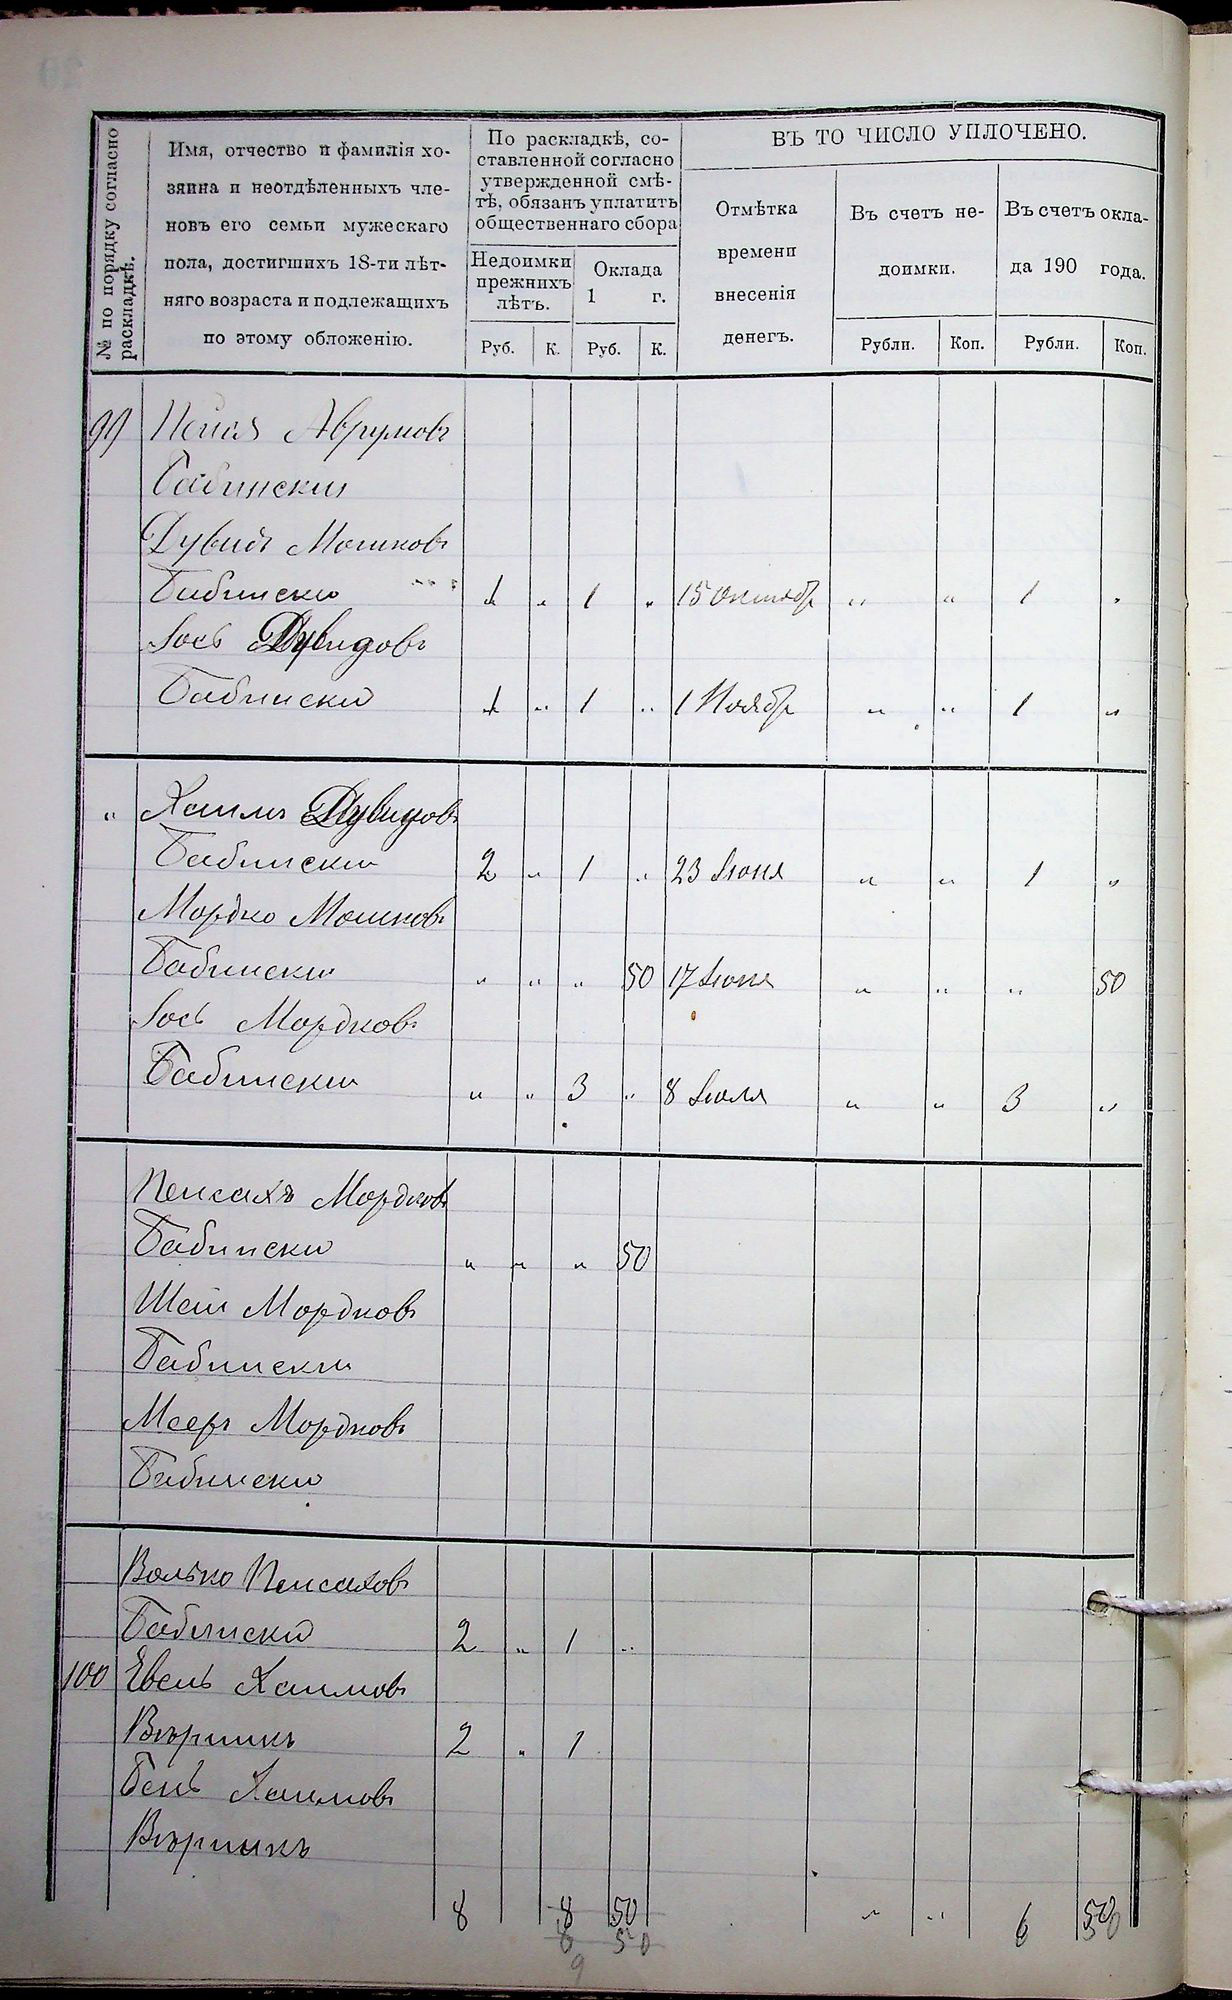 № по порядку согласно раскладкѣ.
Имя, отчество и фамилія хо-
зяина и неотдѣленныхъ чле-
новъ его семьи мужескаго
пола, достигшихъ 18-ти лѣт-
няго возраста и подлежащихъ
по этому обложенію.
По раскладкѣ, со-
ставленной согласно
утвержденной смѣ-
тѣ, обязанъ уплатить
общественнаго сбора
Недоимки
прежнихъ
лѣтъ.
Оклада
1 г.
Руб. К. Руб. К.
ВЪ ТО ЧИСЛО УПЛОЧЕНО.
Отмѣтка
времени
внесенія
денегъ.
Въ счетъ не-
доимки.
Въ счетъ окла-
да 190 года.
Рубли. Коп. Рубли. Коп.
99 Аврумовъ
Бабински
Дувидъ Мошковъ
Бабински 1 „ 1 „ 15 Октябр „ „ 1 „
Іось Дувидовъ
Бабински 1 „ 1 „ 1 Ноябр „ „ 1 „
„ Хаимъ Дувидовъ
Бабински 2 „ 1 „ 23 Іюня „ „ 1 „
Мордко Мошковъ
Бабински „ „ „ 50 17 Іюня „ „ „ 50
Іось Мордковъ
Бабински „ „ 3 „ 8 Іюля „ „ 3 „
Пейсахъ Мордковъ
Бабински „ „ „ 50
Мордковъ
Бабински
Мееръ Мордковъ
Бабински
Волько Пейсаховъ
Бабински 2 „ 1 „
100 Евель Хаимовъ
2 „ 1
Хаимовъ
8 8 50 „ „ 6 50
8 50
9